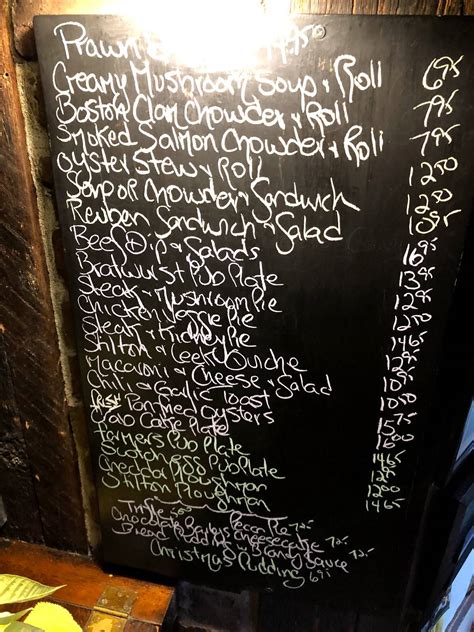 Prawn 14.95
Creamy Mushroom Soup & Roll 6.95
Boston Clam Chowder & Roll 7.95
Smoked Salmon Chowder & Roll 7.95
Oyster Stew & Roll 12.50
Soup or Chowder & Sandwich 12.50
Reuben Sandwich & Salad
Beef Dip & Salads 16.95
Bratwurst Pub Plate 13.95
Steak & Mushroom Pie 12.95
Chicken Veggie Pie 12.50
Steak & Kidney Pie 14.65
Stilton & Leek Quiche
Macaroni & Cheese & Salad
Chili & Garlic Toast
Pan Fried Oysters
Plate 16.00
Farmers Pub Plate 14.65
Scotch Egg Pub Plate
Cheddar Ploughman 12.00
Stilton Ploughman 14.65
Trifle Pecan Pie
Chocolate Baileys Cheesecake 7.25
Bread Pudding w Brandy Sauce
Christmas Pudding 6.95